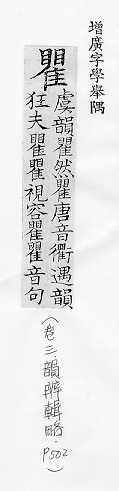 增廣字學舉隅
瞿
虞韻瞿然瞿唐音衢遇韻
狂夫瞿瞿視容瞿瞿音句
(卷三.韻辨輯略.P502.)